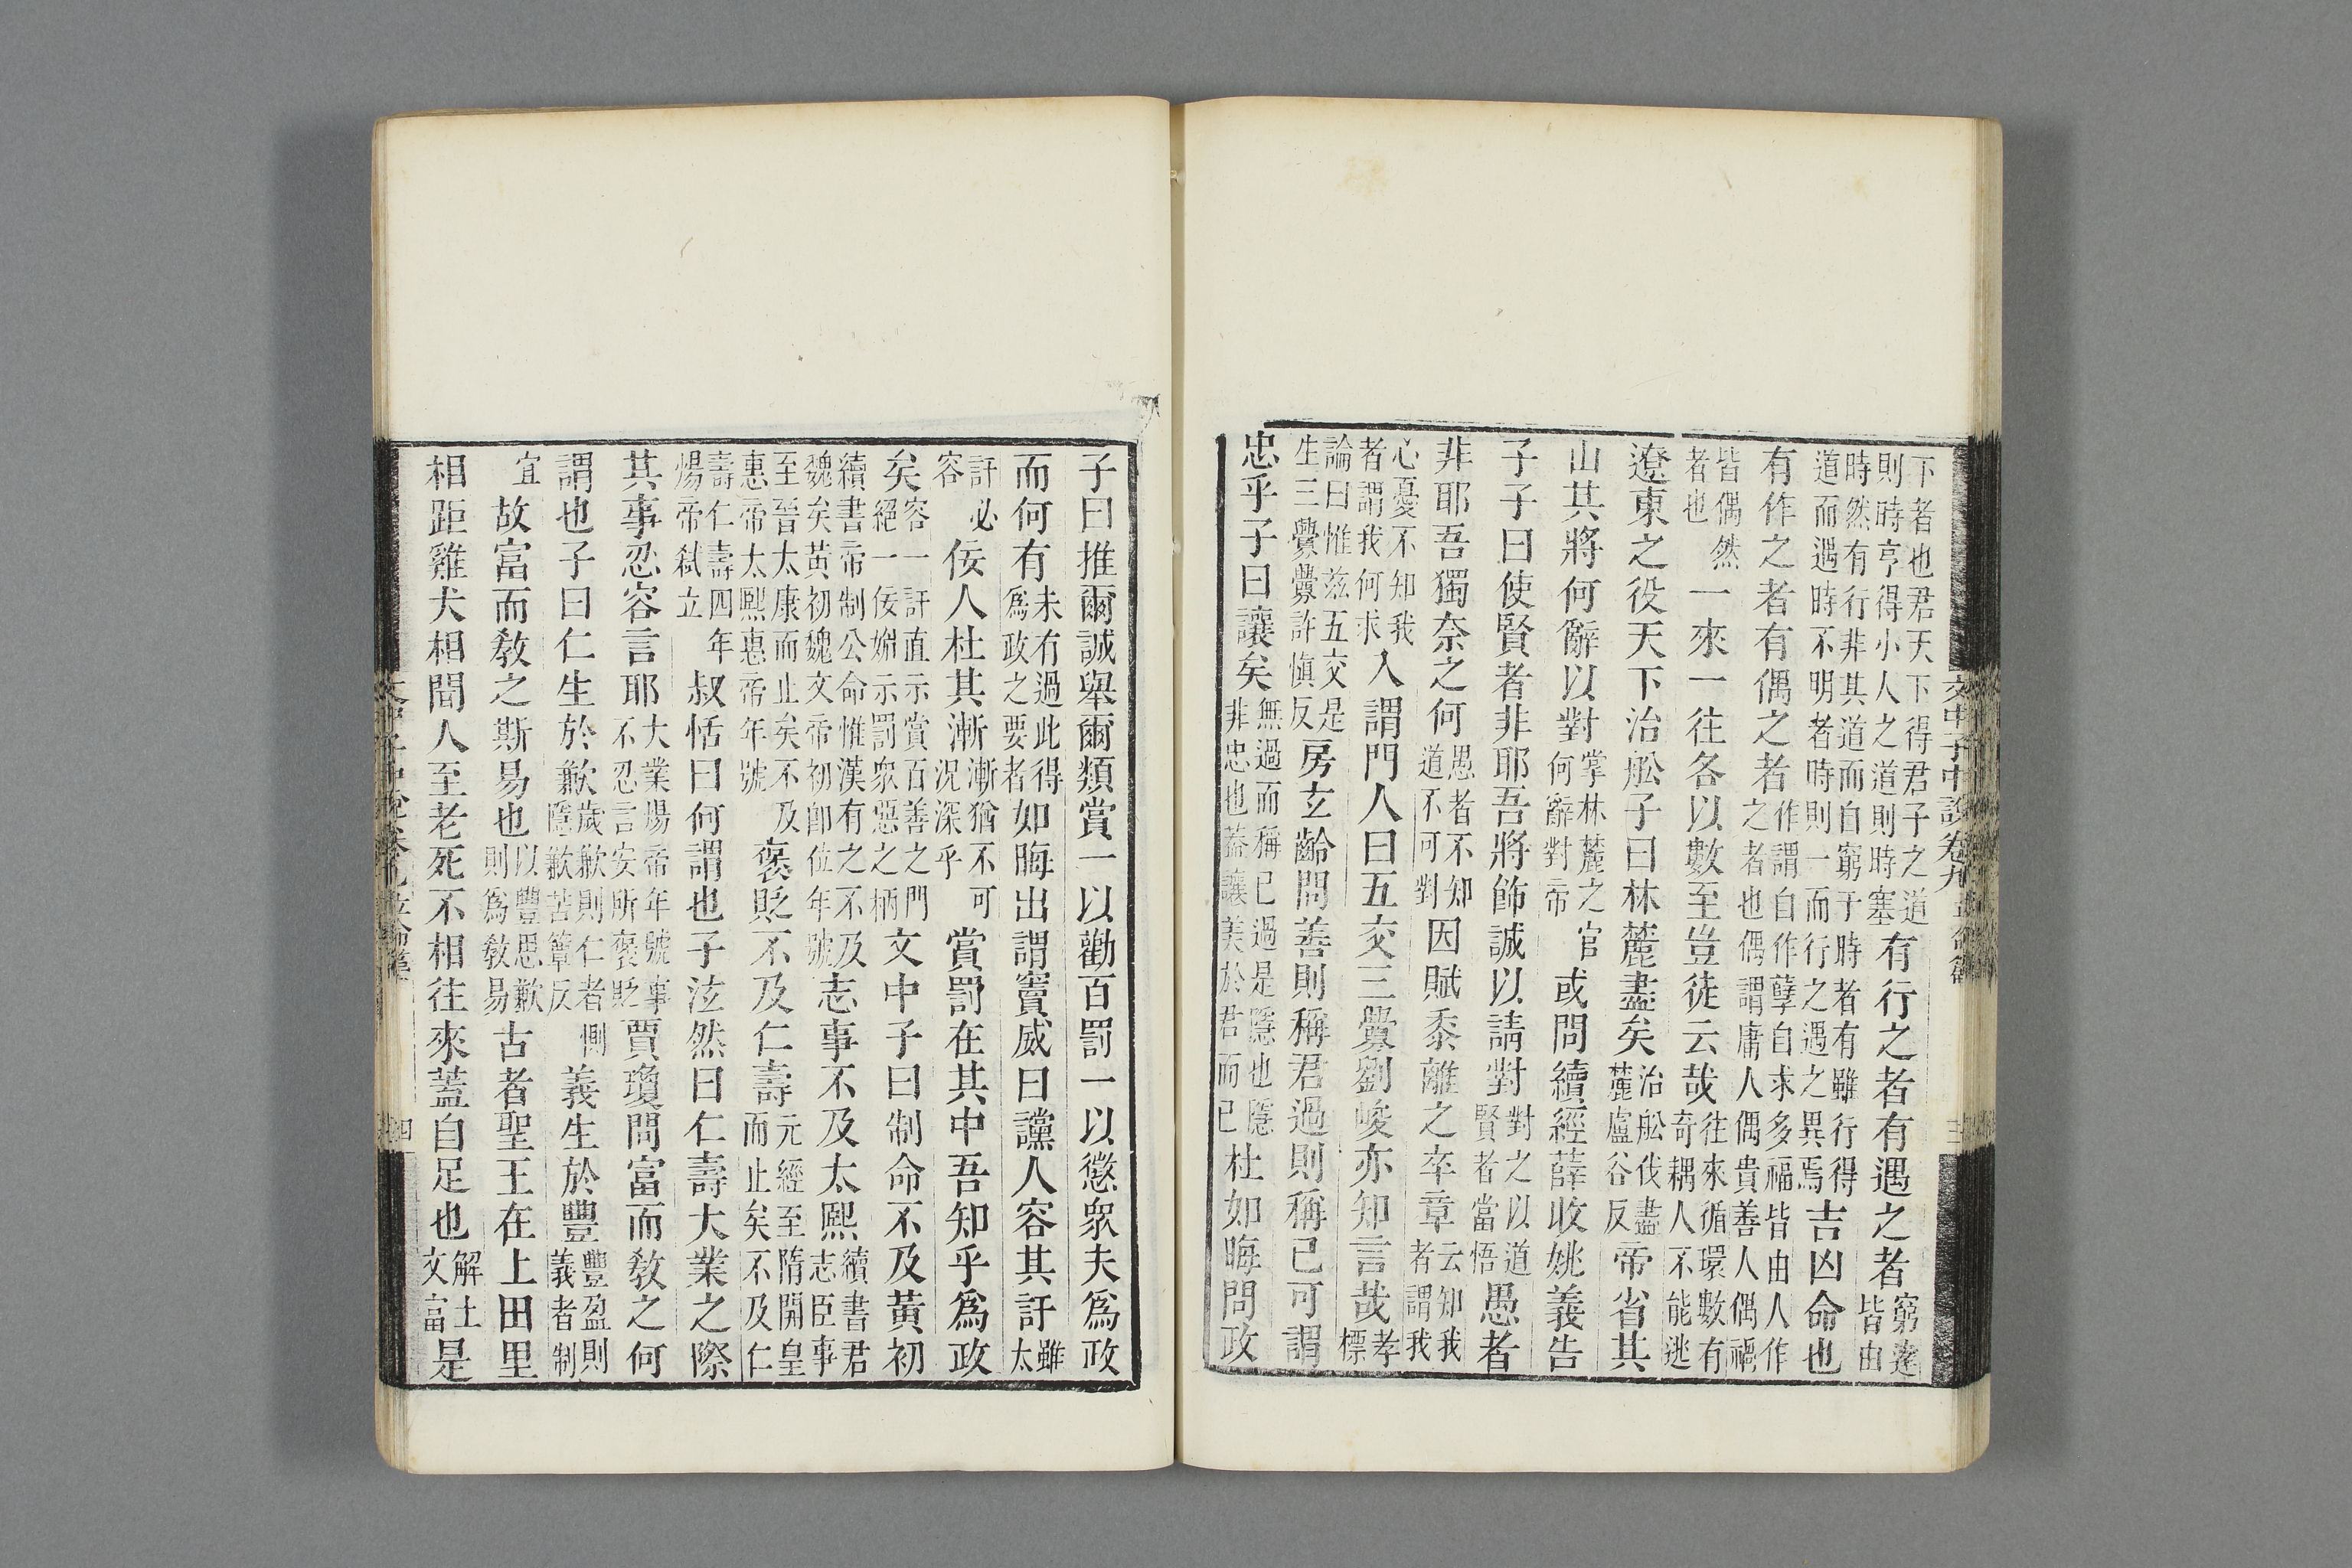 文中子中説卷九 立命篇 三
下者也君天下得君子之道則時亨得小人之道則時塞有行之者有遇之者窮達皆由
時然有行非其道而自窮于時者有雖行得道而遇時不明者時則一而行之遇之異焉吉凶命也
有作之者有偶之者作謂自作孽自求多福皆由人作之者也偶謂庸人偶貴善人偶禍
皆偶然者也一來一往各以數至豈徒云哉往來循環數有奇耦人不能逃
遼東之役天下治舩子曰林麓盡矣治舩伐盡麓盧谷反帝省其
山其將何辭以對掌林麓之官何辭對帝或問續經薛收姚義告
子子曰使賢者非耶吾將飾誠以請對對之以道賢者當悟愚者
非耶吾獨奈之何愚者不知道不可對因賦黍離之卒章云知我者謂我
心憂不知我者謂我何求入謂門人曰五交三釁劉峻亦知言哉孝標
論曰惟茲五交是生三釁釁許愼反房玄齡問善則稱君過則稱已可謂
忠乎子曰讓矣無過而稱已過是隱也隱非忠也蓋讓美於君而已杜如晦問政
子曰推爾誠舉爾類賞一以勸百罰一以懲衆夫爲政
而何有未有過此得爲政之要者如晦出謂竇威曰讜人容其訐雖太
訐必容佞人杜其漸漸猶不可況深乎賞罰在其中吾知乎爲政
矣容一訐直示賞百善之門絕一佞媚示罰衆惡之柄文中子曰制命不及黃初
續書帝制公命惟漢有之不及魏矣黃初魏文帝初卽位年號志事不及太熙續書君志臣事
至晉太康而止矣不及惠帝太熙惠帝年號褒貶不及仁壽元經至隋開皇而止矣不及仁
壽仁壽四年煬帝弑立叔恬曰何謂也子泫然曰仁壽大業之際
其事忍容言耶大業煬帝年號事不忍言安所褒貶賈瓊問富而敎之何
謂也子曰仁生於歉歲歉則仁者惻隱歉苦簟反義生於豐豐盈則義者制
宜故富而敎之斯易也以豐思歉則爲敎易古者聖王在上田里
相距雞犬相聞人至老死不相往來蓋自足也解上文富是
文中子中説卷九 立命篇 四